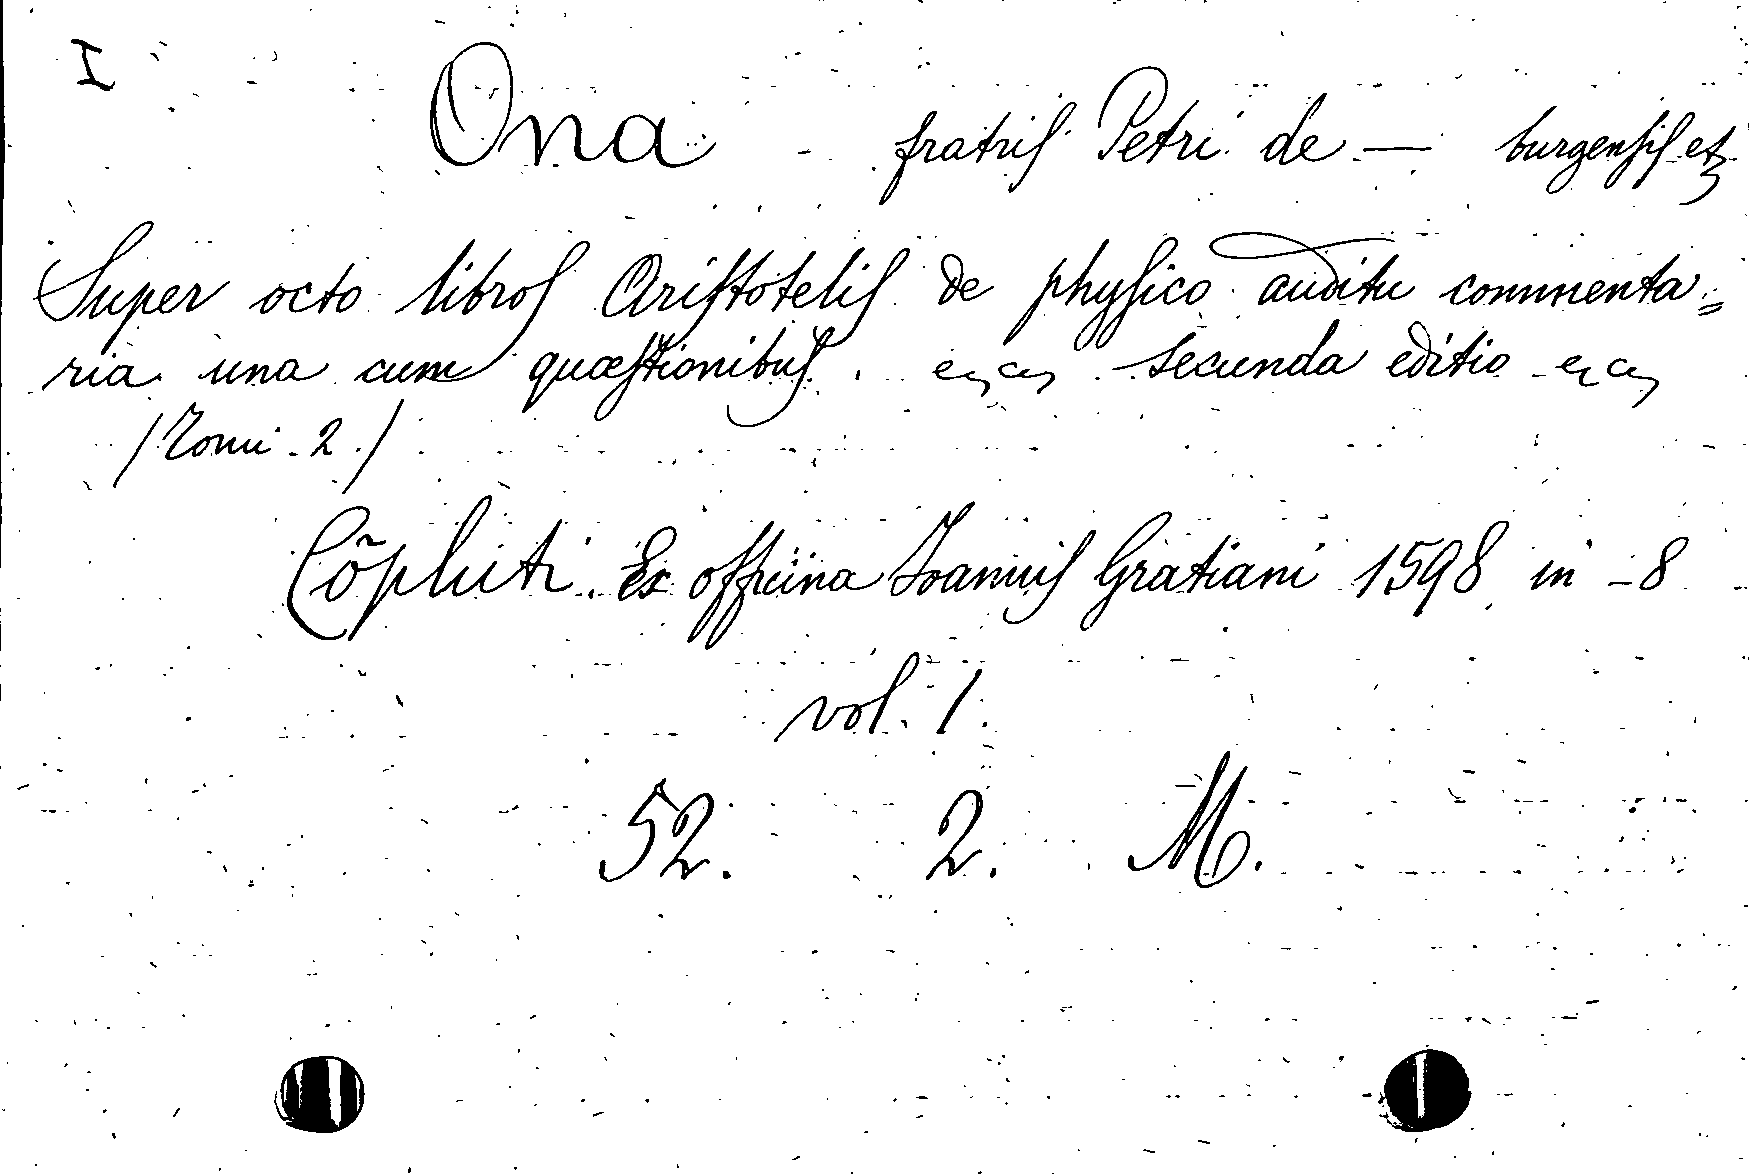 I
Ona - fratris Petri de — burgensis etz
Super octo libros Aristotelis de physico auditu commenta=
ria una cum quæstionibus. etz etz secunda editio etz etz
/Tomi 2./
Cõpluti. Ex officina Joannis Gratiani 1598 in -8
vol. 1.
52. 2. M.